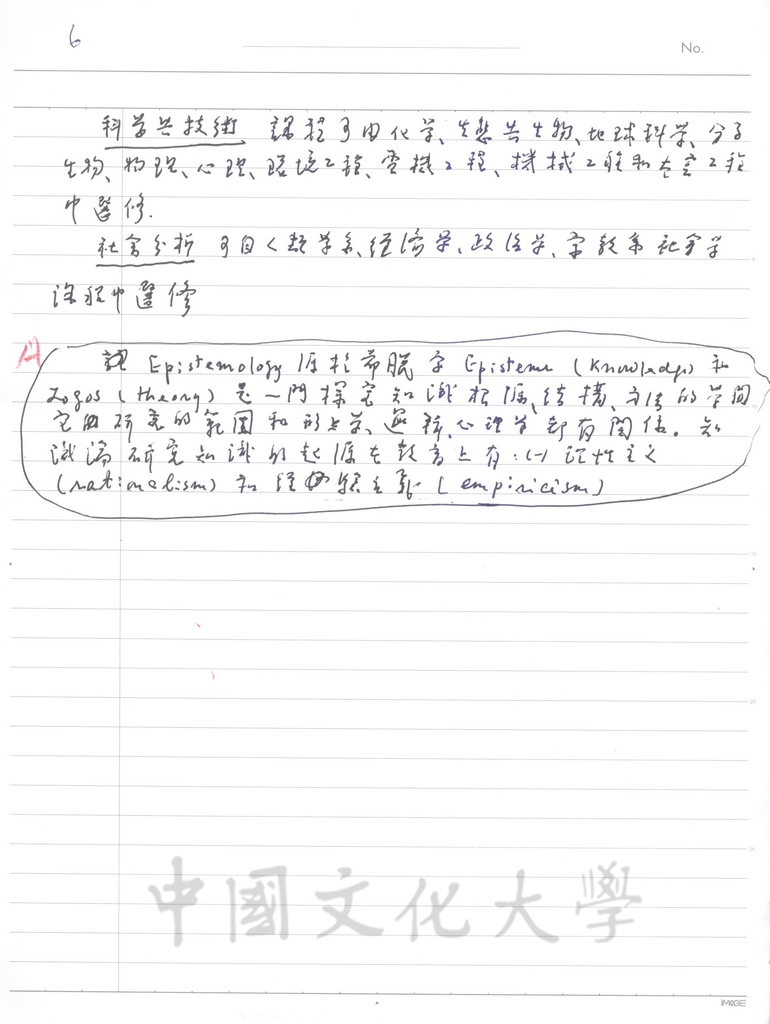 6
No.
科学與技術 課程可由化学、生態與生物、地球科学、分子
生物、物理、心理、環境工程、電機工程、機械工程和太空工程
中選修.
社會分析 可自人類学系、經濟學、政治学、宗教系 社會学
課程中選修
A
Epistemology 源於希臘字 Episteme (Knowledge) 和
Logos (theory) 是一門探究知識根源、結構、方法的学問
它的研究的範圍和形上学、邏輯、心理学都有關係。知
識論研究知識的起源在教育上有:(一)理性主义
(rationalism) 和經驗主義 (empiricism)
中國文化大學
IMAGE